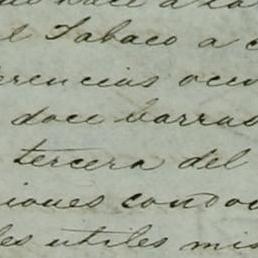 el Tabaco a
erencias ocu
doce barras
tercera del
iones condo
les utiles mis